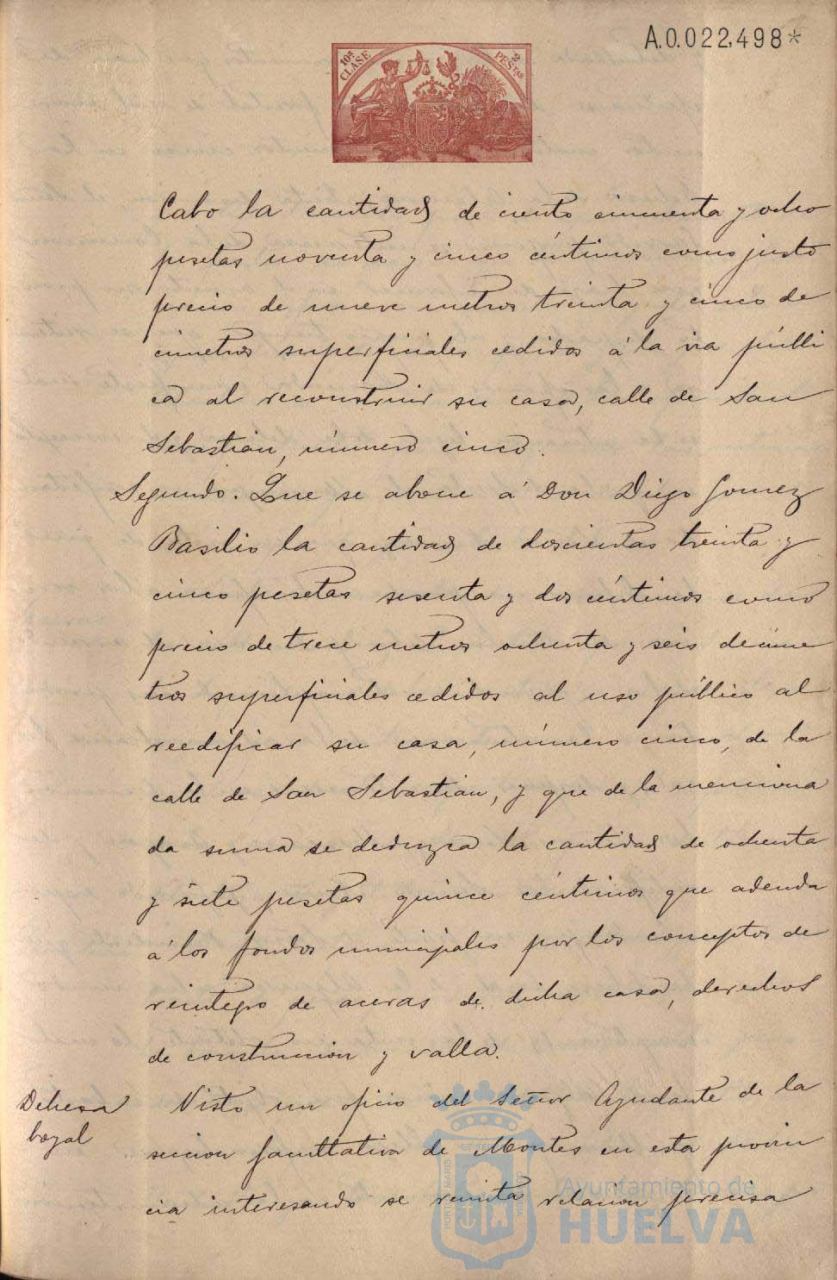 A.0.022,498*
10ª CLASE
2 PESTAS
Cabo la cantidad de ciento cincuenta y ocho
pesetas noventa y cinco céntimos como justo
precio de nueve metros treinta y cinco de
címetros superficiales cedidos á la via públi
ca al reconstruir su casa, calle de San
Sebastian, número cinco.
Segundo. Que se abone á Don Diego Gomez
Basilio la cantidad de doscientas treinta y
cinco pesetas sesenta y dos céntimos como
precio de trece metros ochenta y seis decíme
tros superficiales cedidos al uso público al
reedificar su casa, número cinco, de la
calle de San Sebastian, y que de la menciona
da suma se deduzca la cantidad de ochenta
y siete pesetas quince céntimos que adeuda
á los fondos municipales por los conceptos de
reintegro de aceras de dicha casa, derechos
de construccion y valla.
Dehesa
boyal
Visto un oficio del Señor Ayudante de la
seccion facultativa de Montes en esta provin
cia interesando se remita relacion precisa
Ayuntamiento de
HUELVA